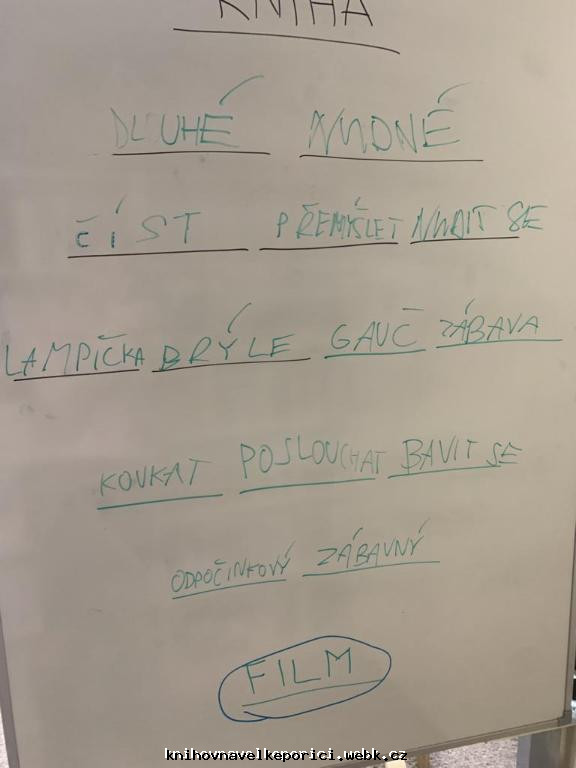 KNIHA
DLOUHÉ NUDNÉ
ČÍST PŘEMÝŠLET NUDIT SE
LAMPIČKA BRÝLE GAUČ ZÁBAVA
KOUKAT POSLOUCHAT BAVIT SE
ODPOČINKOVÝ ZÁBAVNÝ
FILM
knihovnavelkeporici.webk.cz